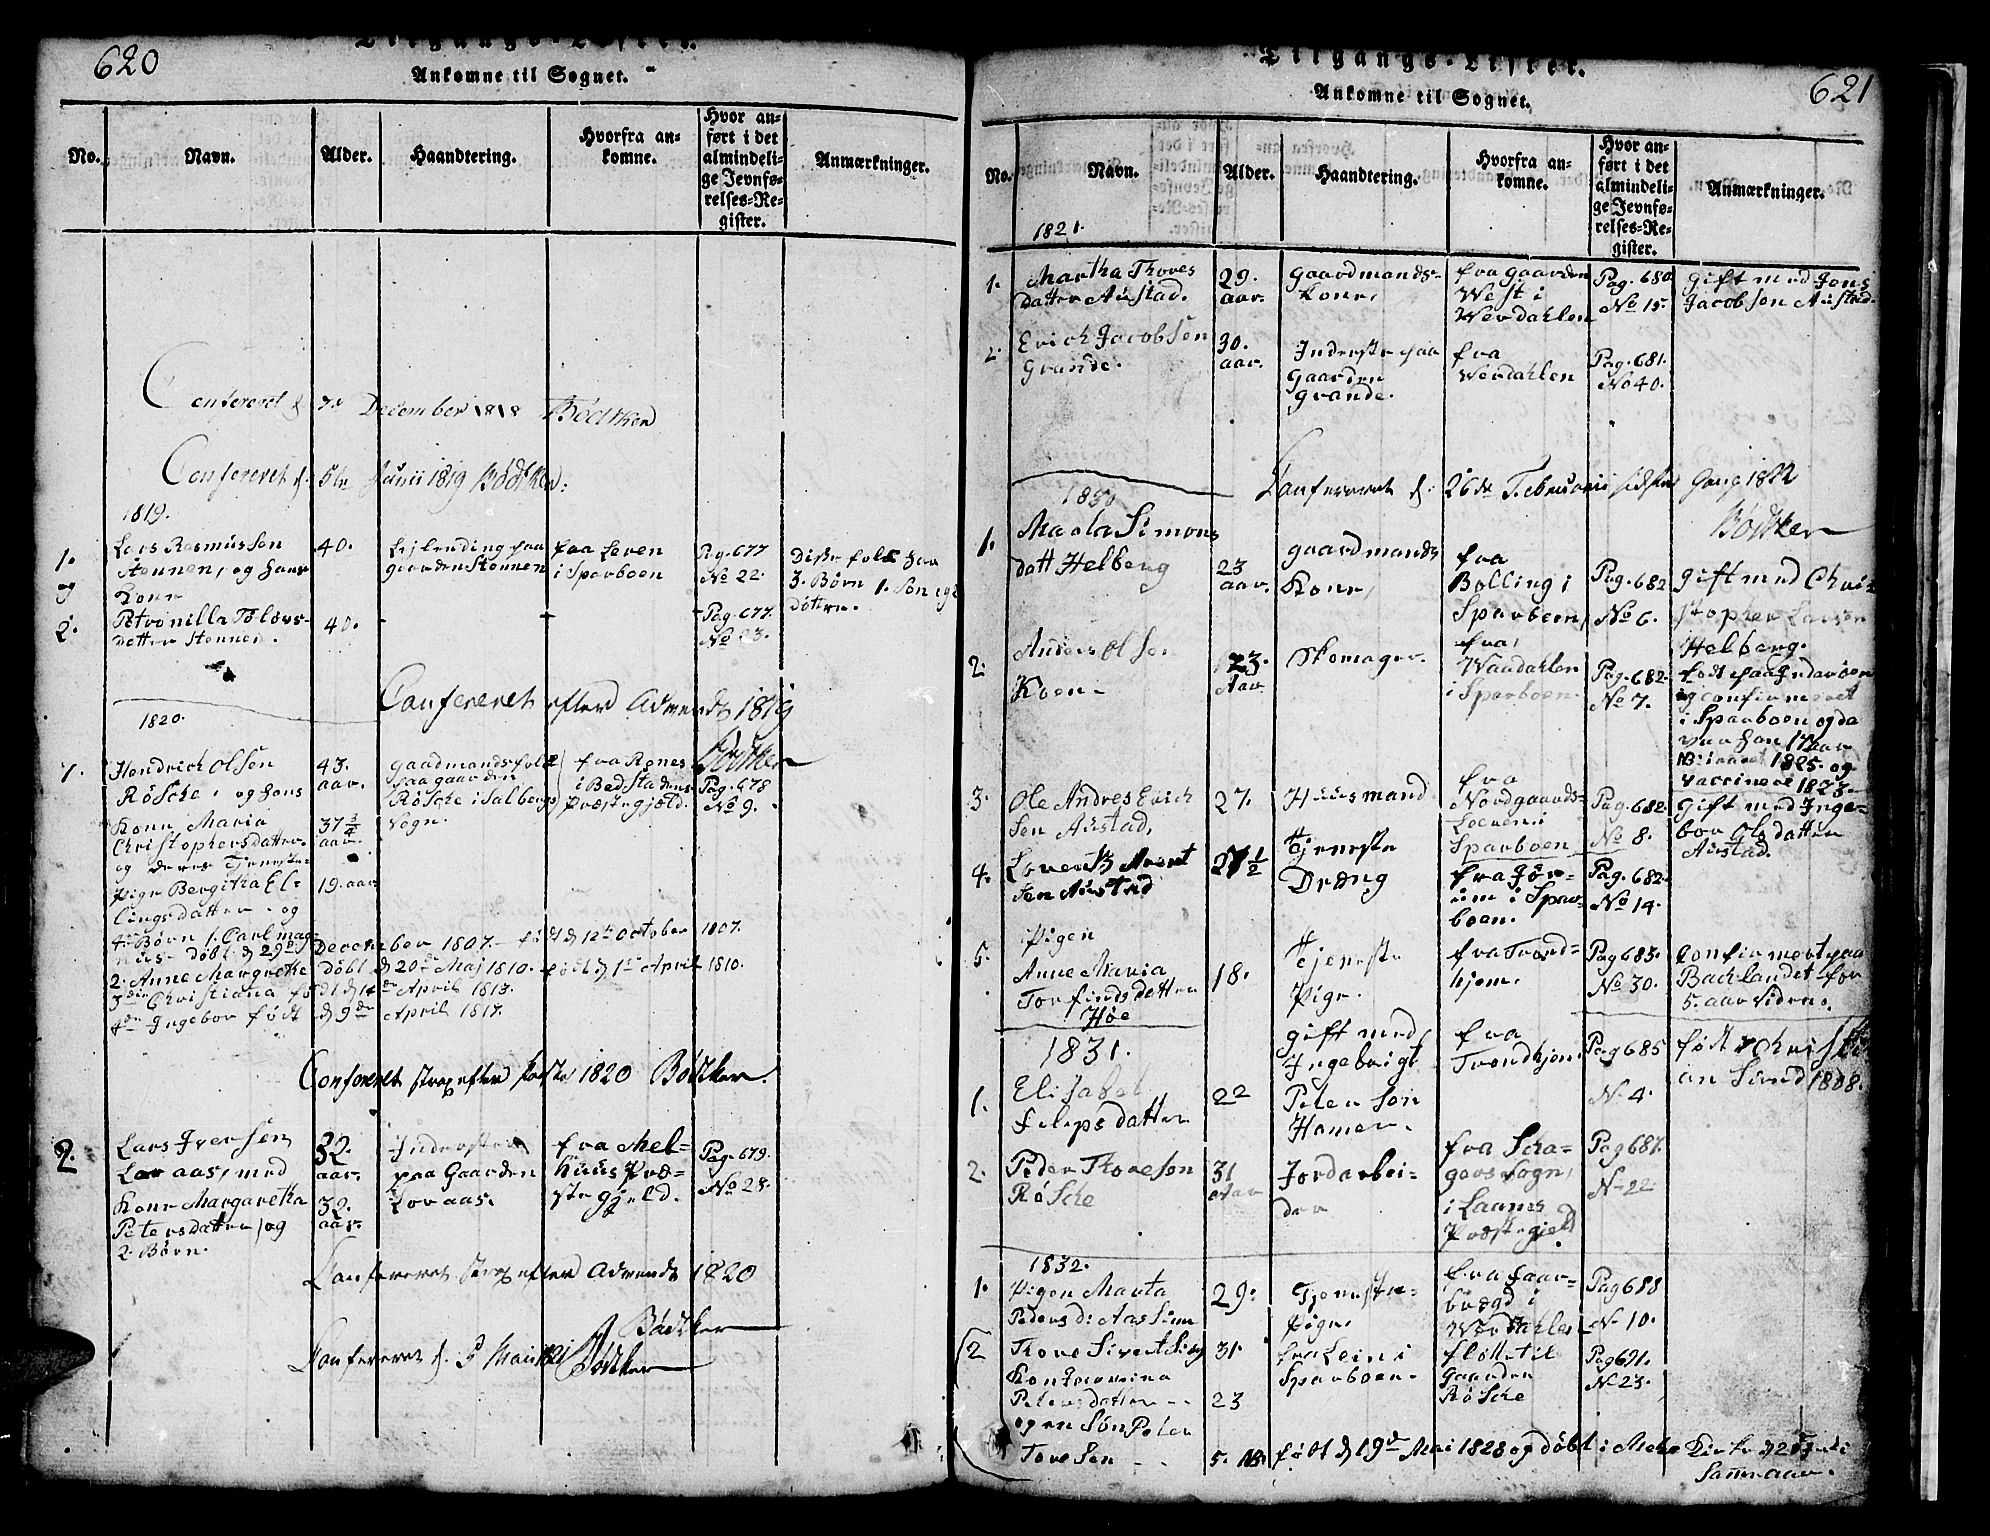 620
Tilgangs-Lister.
Ankomne til Sognet.
No.
Navn.
Alder.
Haandtering.
Hvorfra an-
komne.
Hvor an-
ført i det
almindeli-
ge Jevnfø-
relses-Re-
gister.
Anmærkninger.
Confereret d 7de December 1818 Bödtker
Confereret d. 6te Junii 1819 Bödtker.
1819.
1.
og
2.
Lars Rasmussen
Stennen, og hans
Kone
Petronilla Tolövs-
datter Stennen.
40.
40.
Lejlending paa
gaarden Stennen
fra Leren
i Sparboen
Pag. 677
No 22.
Pag. 677.
No 23.
Disse folk har
3. Børn 1. Søn og 2
døttre.
Confereret efter Advendt 1819
Bödtker
1820.
1.
Hendrich Olsen
Røsche, og hans
Kone Maria
Christophersdatter
og deres Tjeneste-
pige Bergitha El-
lingsdatter. og
4re Børn 1. Carl mag-
nus døbt d 29de December 1807. født d 12te October 1807.
2. Anne Margrethe døbt d 20de Maj 1810. født d 1ste April 1810.
3die Christiana født d 14de April 1813.
4de Ingebor født d 9de April 1817.
43.
aar.
37 3/4
aar.
19. aar
gaardmandsfolk
paa gaarden
Røsche i Salbergs
Sogn.
fra Rones
i Bedstadens
Præstegjeld.
Pag. 678
No 9.
Confereret strax efter Paaske 1820 Bödtker.
2.
Lars Iversen
Loraas, med
Kone Margaretha
Petersdatter, og
2. Børn.
32.
aar.
32.
aar.
Inderster
paa Gaarden
Loraas.
fra Mel-
huus Præ-
stegjeld.
Pag. 679.
No 28.
Confereret strax efter Advendt 1820
Bödtker
Confereret d. 5 Mai 1821 Bödtker
621
Tilgangs-Lister.
Ankomne til Sognet.
No.
Navn.
Alder.
Haandtering.
Hvorfra an-
komne.
Hvor an-
ført i det
almindeli-
ge Jevnfø-
relses-Re-
gister.
Anmærkninger.
1821.
1.
Martha Thores
datter Austad.
29.
aar.
Gaardmands-
kone,
fra gaarden
West i
Werdahlen
Pag. 680
No 15.
Gift med Jens
Jacobsen Austad.
2.
Erich Jacobsen
Grande.
30.
aar.
Inderste paa
Gaarden
Grande.
fra
Werdahlen
Pag. 681.
No 40.
Confereret d. 26de Februarii sidste Gang 1822
Bödtker
1830
1.
Simons
datt Helberg
23
aar.
gaardmands
Kone,
fra
Bolling i
Sparboen,
Pag. 682
No 6.
gift med Chri-
stopher Larsen
Helberg.
2.
Anders Olsen
Koen.
23.
Aar
Skomager.
fra
Wandahlen
i Sparboen.
Pag. 682.
No 7.
født paa Inderøen
og confirmeret
i Sparboen og da
var han 17 aar
i aaret 1825. og
vaccineret 1823.
3.
Ole Andres Erich
sen Austad,
27.
Huusmand
fra
Nordgaards-
Leeren i
Sparboen
Pag. 682.
No 8.
Gift med Inge-
bor Olsdatter
Austad.
4.
Lorents Arent
sen Austad
27 1/2
Tjeneste
Dræng
fra Jør-
um i Spar-
boen.
Pag. 682.
No 14.
5.
Pigen
Anne Maria
Torfindsdatter
Høe
18.
Tjeneste
Pige.
fra Trond-
hjem.
Pag 683.
No 30.
Confirmert paa
Backlandet for
5. aar siden.
1831.
1.
Elisabet
filipsdatter
22
gift med
Ingebrigt
Petersøn
Hamer.
fra
Trondhjem
Pag 685
No 4.
født
1808.
2.
Peder Thoresøn
Røsche
31
Aar
Jordarbei-
der
fra Scha-
gers Sogn,
i Laanes
Præstegjeld
Pag 687.
No 22.
1832.
1.
Pigen Marta
Peders d: Aassum
29.
Tjeneste-
Pige
fra Faar-
brægd i
Werdahlen
Pag 688
No 10.
2
Tore Sivertsen
Kone
Petersdatter
og en Søn Peter
Toresen
31.
23
5.
fra Lein i
Sparboen.
fløttet til
Gaarden
Røsche
Pag 691.
No 23.
NB. født d 19de Mai 1828 og døbt i Mære Kirke
Samme aar.